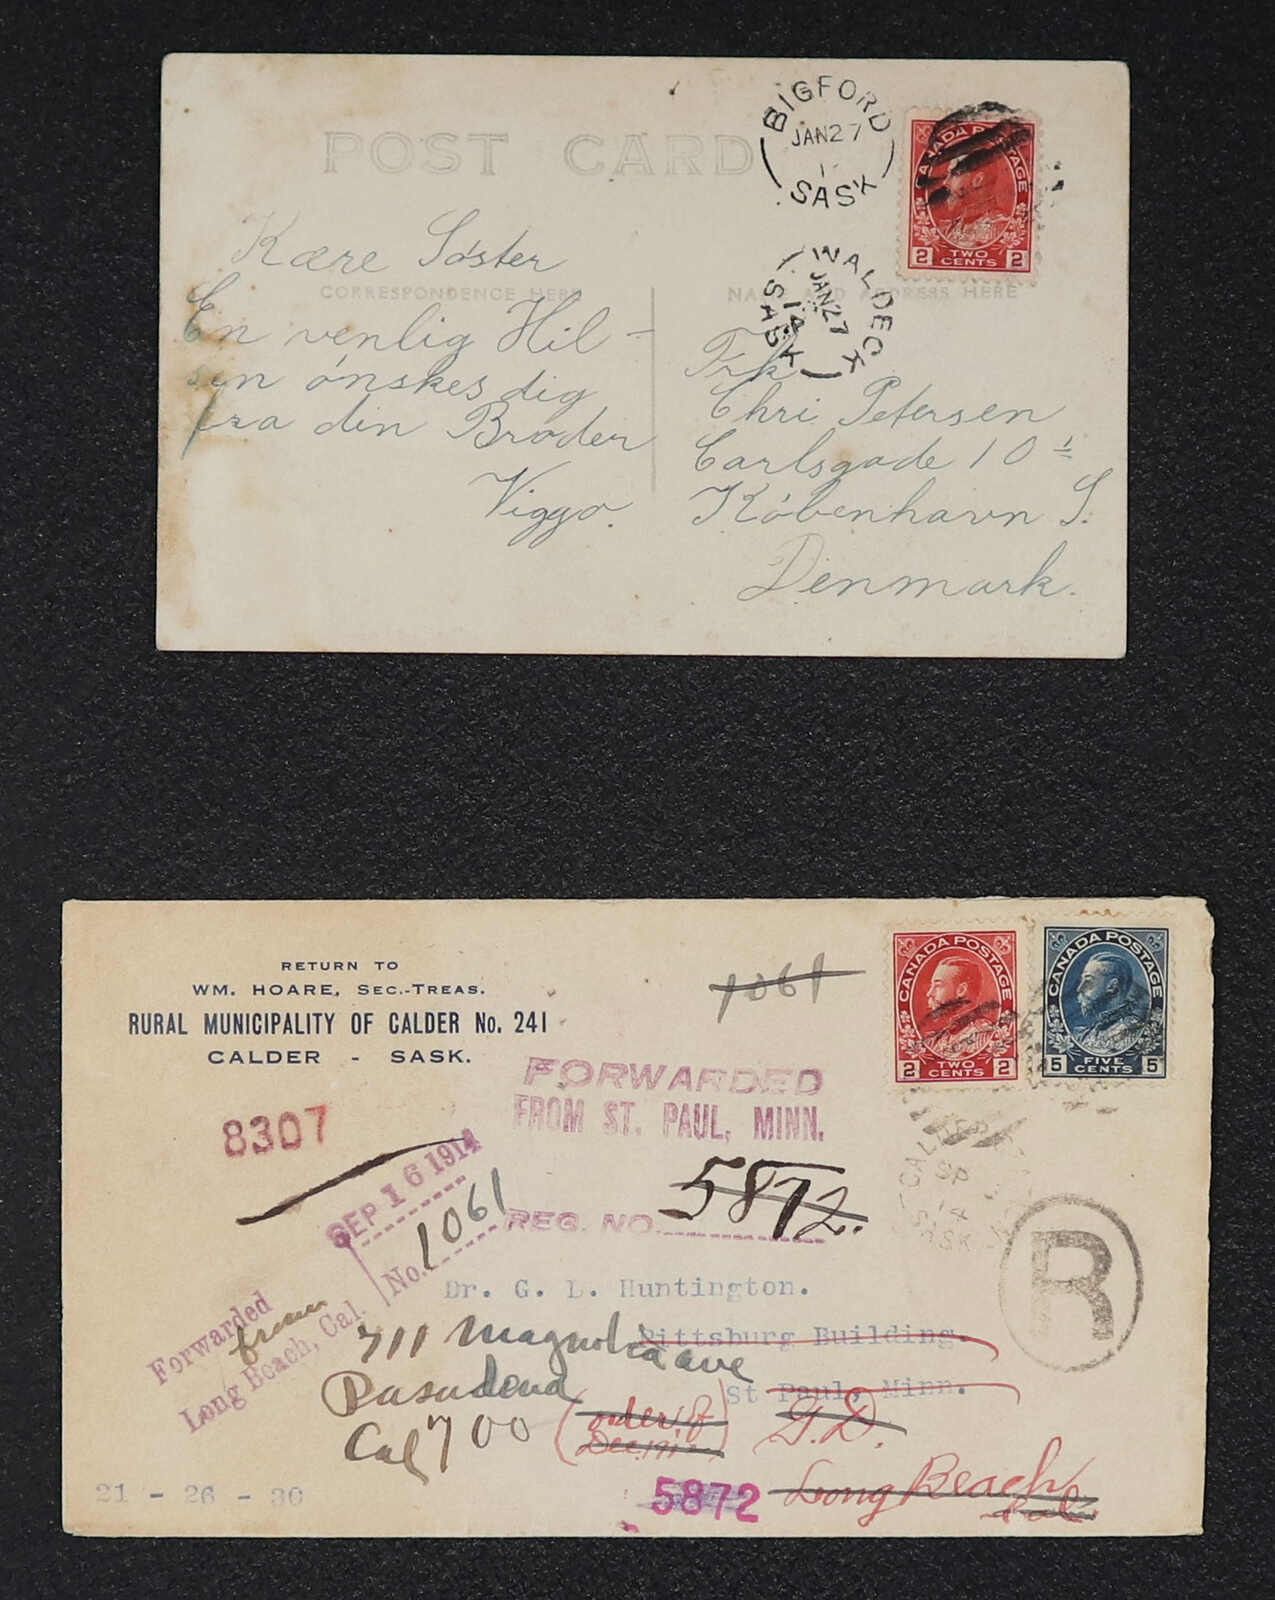 POST CARD
BIGFORD
JAN 27
1
SASK
CANADA POSTAGE
2 TWO CENTS 2
WALDECK
JAN 27
14
SASK
CORRESPONDENCE HERE
NAME AND ADDRESS HERE
Kære Søster
En venlig Hil-
sen ønskes dig
fra din Broder
Viggo.
Frk
Chri Petersen
Carlsgade 10
København S.
Denmark.
RETURN TO
WM. HOARE, SEC.-TREAS.
RURAL MUNICIPALITY OF CALDER No. 241
CALDER - SASK.
1061
CANADA POSTAGE
2 TWO CENTS 2
CANADA POSTAGE
5 FIVE CENTS 5
FORWARDED
FROM ST. PAUL, MINN.
8307
SEP 16 1914
No. 1061
REG. NO. 5872.
CALDER
SP
14
SASK
R
Forwarded
from
Long Beach, Cal.
Dr. G. L. Huntington.
Pittsburg Building.
St Paul, Minn.
711 Magnolia ave
Pasadena
Cal 700
(order of
Dec. 191
G.D.
Long Beach
Cal.
5872
21 - 26 - 30